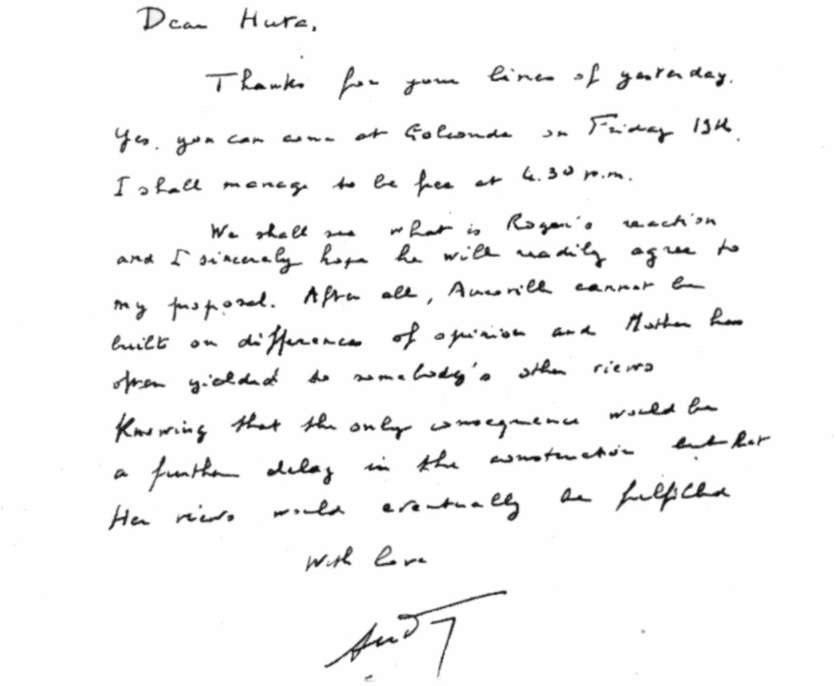 Dear Huta,
Thanks for your lines of yesterday.
Yes, you can come at Golconde on Friday 19th.
I shall manage to be free at 4.30 p.m.
We shall see what is Roger's reaction
and I sincerely hope he will readily agree to
my proposal. After all, Auroville cannot be
built on differences of opinion and Mother has
often yielded to somebody's other views
Knowing that the only consequence would be
a further delay in the construction but that
Her views would eventually be fulfilled
With love